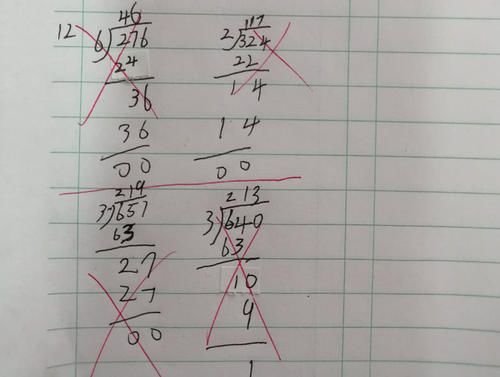 12
46
6)276
24
36
36
00
117
2)324
22
14
14
00
219
3)657
63
27
27
00
213
3)640
63
10
9
1